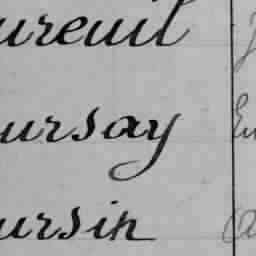 ureuil
ursay
ursin